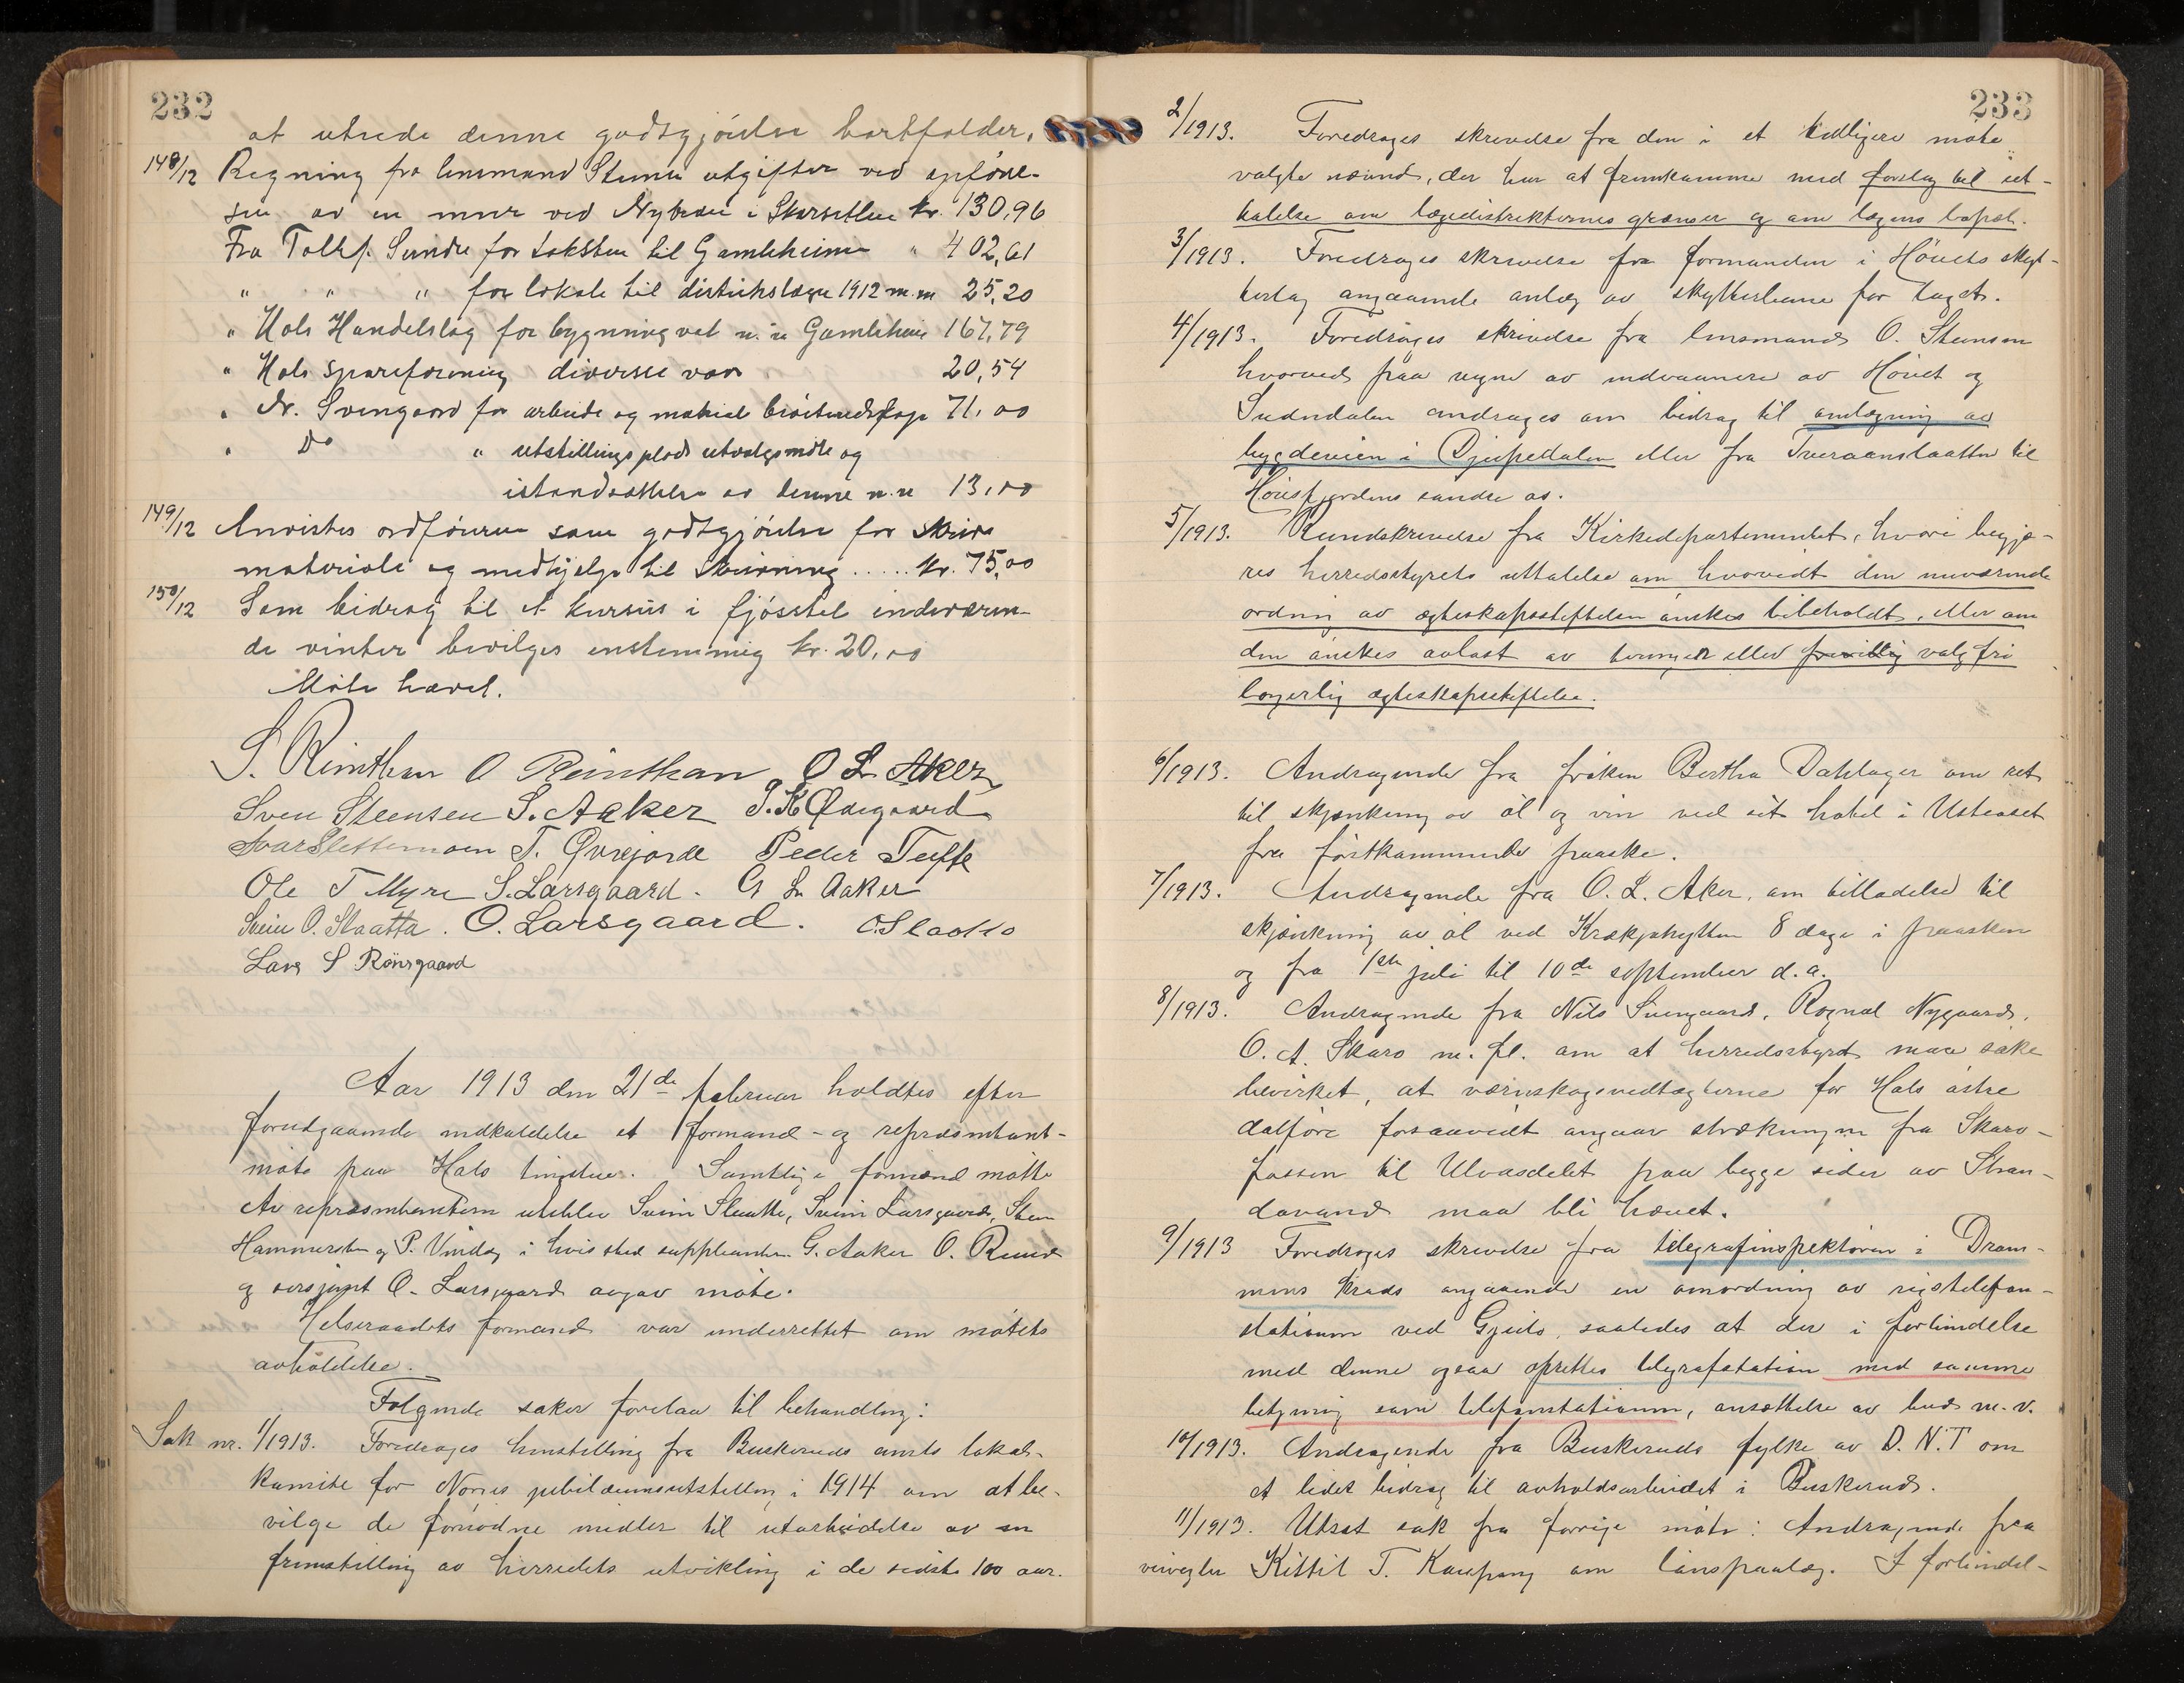 232
at utrede denne godtgjörelse bortfalder.
148/12 Regning fra lensmand Stensen utgifter ved opförel-
sen av en mur ved Nybruen i Skurseth kr. 130,96
Fra Tollef Sundre for taksten til Gamleheimen " 402,61
" " " for lokale til distriktslæge 1912 m.m 25,20
" Hols Handelslag for bygningved n. n Gamleheim 167,79
" Hols spareforening diverse var 20,54
" Nr. Svengaard for arbeide og materiale 71,00
" Do " utstillingsplads utvalgsmöte og
istandsættelse av denne n. n 13,00
149/12 Anvistes ordföreren som godtgjörelse for skrive
materiale og medhjelp til skrivning ..... kr. 75,00
150/12 Som bidrag til et kursus i fjösstel indeværen-
de vinter bevilges enstemmig kr. 20,00
Möte hævet.
S. Reinthon O Reinthan O L. Aker
Sven Steensen S. Aaker T. K Ødegaard
Ivar Slettemoen T. Qvisjorde Peder Tufte
Ole T Myre S. Larsgaard. G L. Aaker
Svein O. Slaatta. O. Larsgaard. O. Slaatto
Lars S Rönsgaard
Aar 1913 den 21de februar holdtes efter
forutgaaende indkaldelse et formand- og repræsentant-
möte paa Hols tingstue. Samtlige formænd mötte
Av repræsentanterne uteblev Svein Slaatto, Svein Larsgaard, Sten
Hammersbøn og P. Vindeg i hvis sted suppleanten G. Aaker O. Ruud
og O. Larsgaard avgav möte.
Helseraadets formand var underrettet om mötets
avholdelse.
Følgende saker forelaa til behandling:
Sak nr. 1/1913. Foredrages henstilling fra Buskeruds amts lokal-
komite for Norges jubilæumsutstilling i 1914 om at be-
vilge de fornødne midler til utarbeidelse av en
fremstilling av herredets utvikling i de sidste 100 aar.
233
2/1913. Foredrages skrivelse fra den i et tidligere möte
valgte nævnd, der har at fremkomme med forslag til ut-
talelse om lægedistrikternes grænser og om lægens bopæl.
3/1913. Foredrages skrivelse fra formanden i Hövets skyt-
terlag angaaende anlæg av skytterbane for laget.
4/1913. Foredrages skrivelse fra lensmand O. Steensen
hvorved paa vegne av indvaanere av Hövet og
Sudndalen andrages om bidrag til omlægning av
bygdeveien i Djupedalen eller fra Tveraanslaatten til
Hövsfjordens søndre os.
5/1913. Rundskrivelse fra Kirkedepartementet, hvori begjæ-
res herredsstyrets uttalelse om hvorvidt den nuværende
ordning av ægteskapsstiftelsen önskes bibeholdt, eller om
den önskes avløst av tvungen eller frivillig valgfri
borgerlig ægteskapsstiftelse.
6/1913. Andragende fra fröken Bertha Dahlager om ret
til skjænkning av öl og vin ved sit hotel i Ustaoset
fra förstkommende paaske.
7/1913. Andragende fra O. L. Aker, om tilladelse til
skjænkning av öl ved Krækjahytten 8 dage i paasken
og fra 1ste juli til 10de september d.a.
8/1913. Andragende fra Nils Svengaard, Ragnal Nygaard,
O. A. Skaro m. fl. om at herredsstyret maa söke
bevirket, at værnskogsvedtægterne for Hols östre
dalföre forsaavidt angaar strækningen fra Skaro-
fossen til Ulvasdelet paa begge sider av Stran-
davand maa bli hævet.
9/1913 Foredrages skrivelse fra telegrafinspektören i Dram-
mens kreds angaaende en omordning av rigstelefon-
stationen ved Gjeilo, saaledes at der i forbindelse
med denne ogsaa oprettes telegrafstation med samme
betjening som telefonstationen, ansættelse av bud m. v.
10/1913. Andragende fra Buskeruds fylke av D. N. T om
et litet bidrag til avholdsarbeidet i Buskerud.
11/1913. Utsat sak fra forrige möte: Andragende fra
veivogter Kittil T. Kaupang om lönspaalæg. I forbindel-